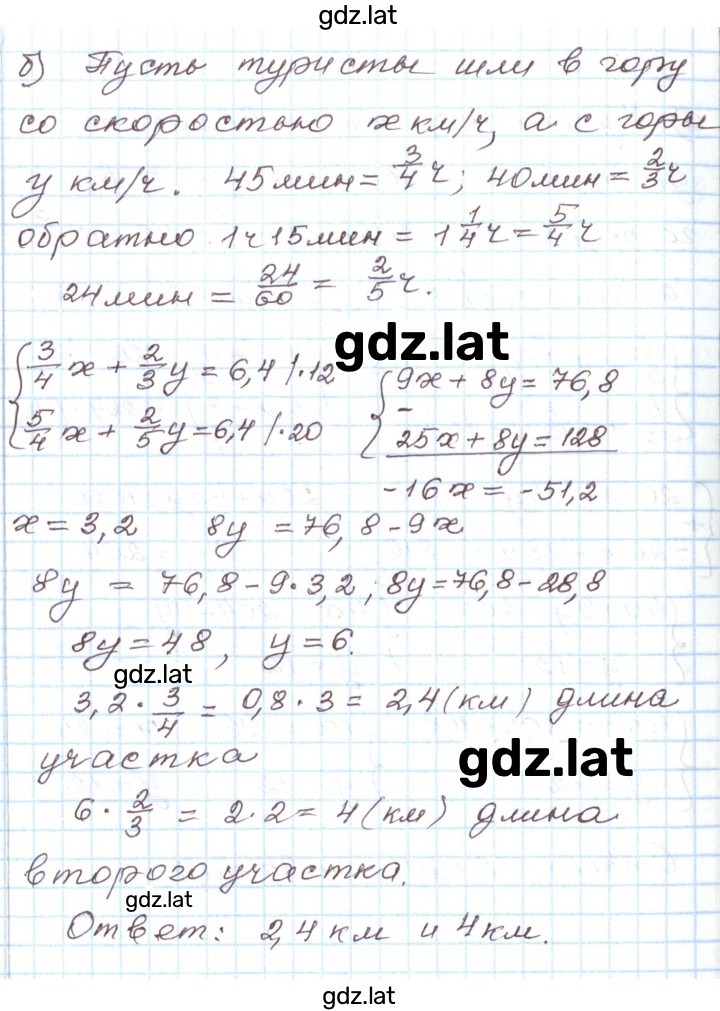 gdz.lat
б) Пусть туристы шли в гору
со скоростью x км/ч, а с горы
y км/ч. 45 мин = 3/4 ч; 40 мин = 2/3 ч
обратно 1ч 15 мин = 1 1/4 ч = 5/4 ч
24 мин = 24/60 = 2/5 ч.
gdz.lat
{ 3/4 x + 2/3 y = 6,4 /·12
5/4 x + 2/5 y = 6,4 /·20
{ 9x + 8y = 76,8
-
25x + 8y = 128
-16x = -51,2
x = 3,2 8y = 76,8 - 9x
8y = 76,8 - 9·3,2; 8y = 76,8 - 28,8
8y = 48, y = 6.
gdz.lat
3,2 · 3/4 = 0,8 · 3 = 2,4 (км) длина
участка
gdz.lat
6 · 2/3 = 2·2 = 4 (км) длина
второго участка.
gdz.lat
Ответ: 2,4 км и 4 км.
gdz.lat